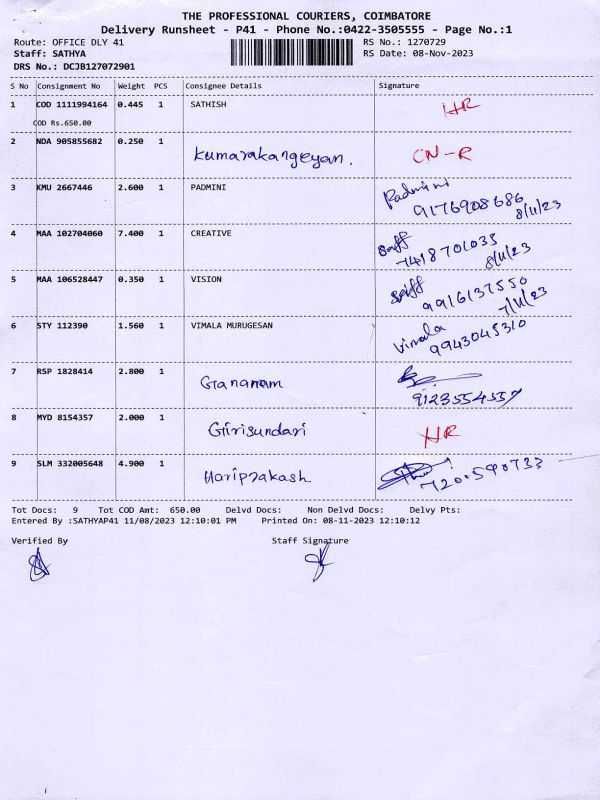 THE PROFESSIONAL COURIERS, COIMBATORE
Delivery Runsheet - P41 - Phone No.:0422-3505555 - Page No.:1
Route: OFFICE DLY 41 RS No.: 1270729
Staff: SATHYA RS Date: 08-Nov-2023
DRS No.: DCJB127072901
S No Consignment No Weight PCS Consignee Details Signature
1 COD 1111994164 0.445 1 SATHISH HR
COD Rs.650.00
2 NDA 905855682 0.250 1 Kumarakangeyan. CN-R
3 KMU 2667446 2.600 1 PADMINI Padmini
9176908686
8/11/23
4 MAA 102704060 7.400 1 CREATIVE Staff
7418701035
8/11/23
5 MAA 106528447 0.350 1 VISION Staff
9916137550
7/11/23
6 STY 112390 1.560 1 VIMALA MURUGESAN Vimala
9943045310
7 RSP 1828414 2.800 1 Gananam
9123554557
8 MYD 8154357 2.000 1 Girisundari HR
9 SLM 332005648 4.900 1 Hariprakash
Tot Docs: 9 Tot COD Amt: 650.00 Delvd Docs: Non Delvd Docs: Delvy Pts:
Entered By :SATHYAP41 11/08/2023 12:10:01 PM Printed On: 08-11-2023 12:10:12
Verified By Staff Signature